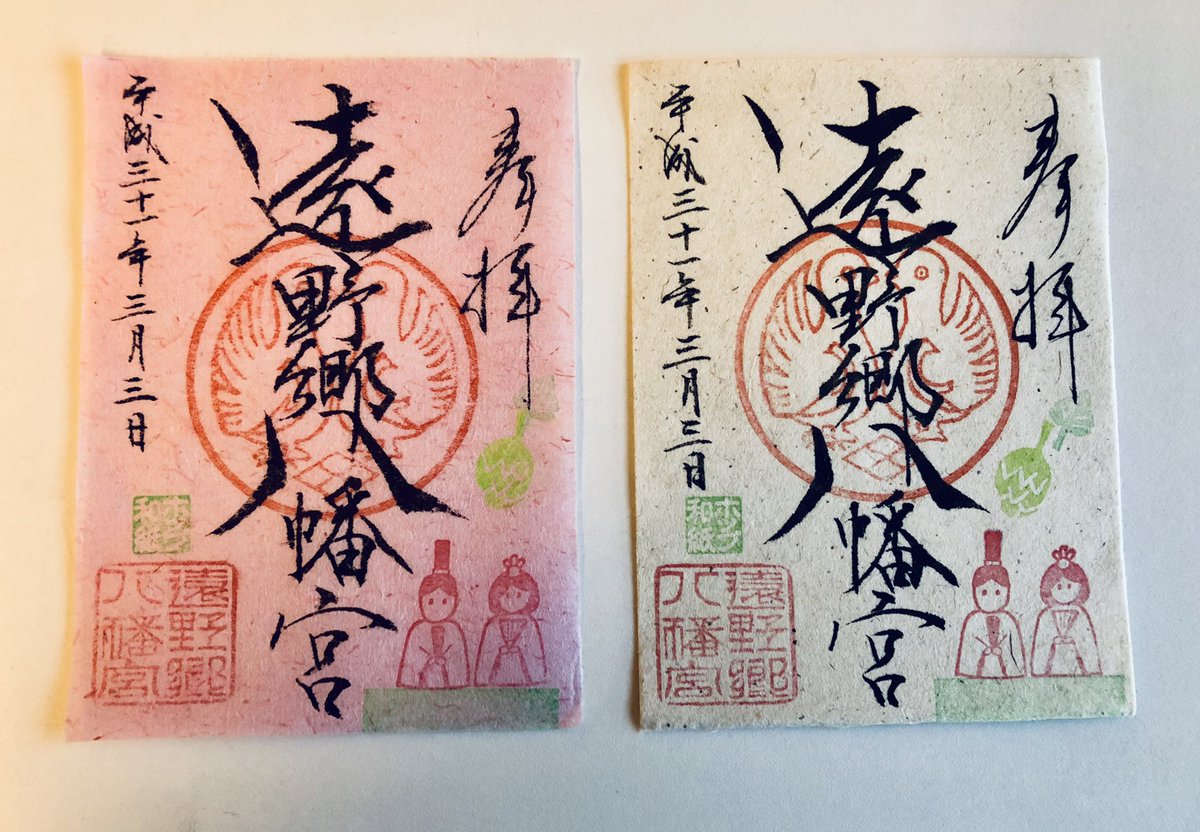 奉拝
遠野郷八幡宮
平成三十一年三月三日
ホップ
和紙
遠野郷
八幡宮
奉拝
遠野郷八幡宮
平成三十一年三月三日
ホップ
和紙
遠野郷
八幡宮